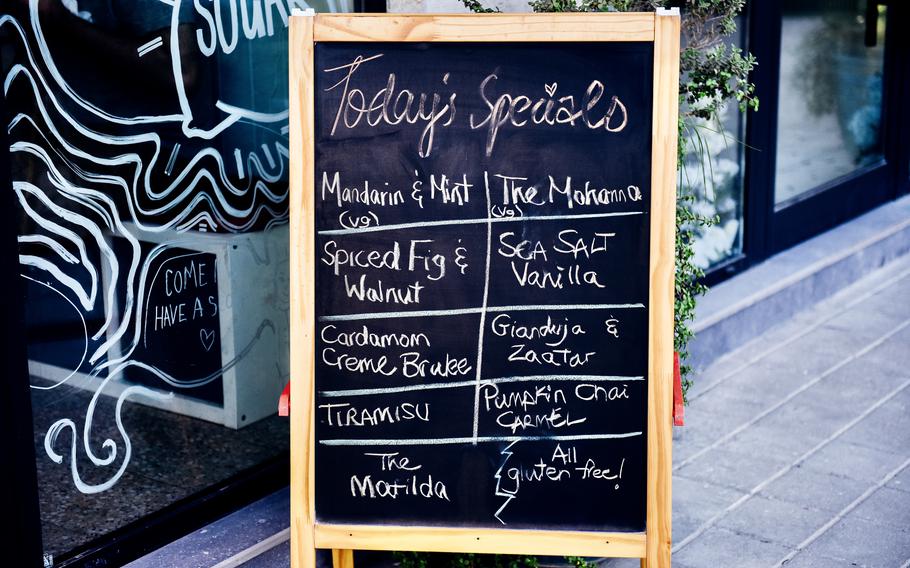 SQUA
COME
HAVE A S
Today's Specials
Mandarin & Mint
(vg)
The Mohanna
(vg)
Spiced Fig &
Walnut
SEA SALT
Vanilla
Cardamom
Creme Brulee
Gianduja &
Zaatar
TIRAMISU
Pumpkin Chai
CARMEL
The
Matilda
All
gluten free!